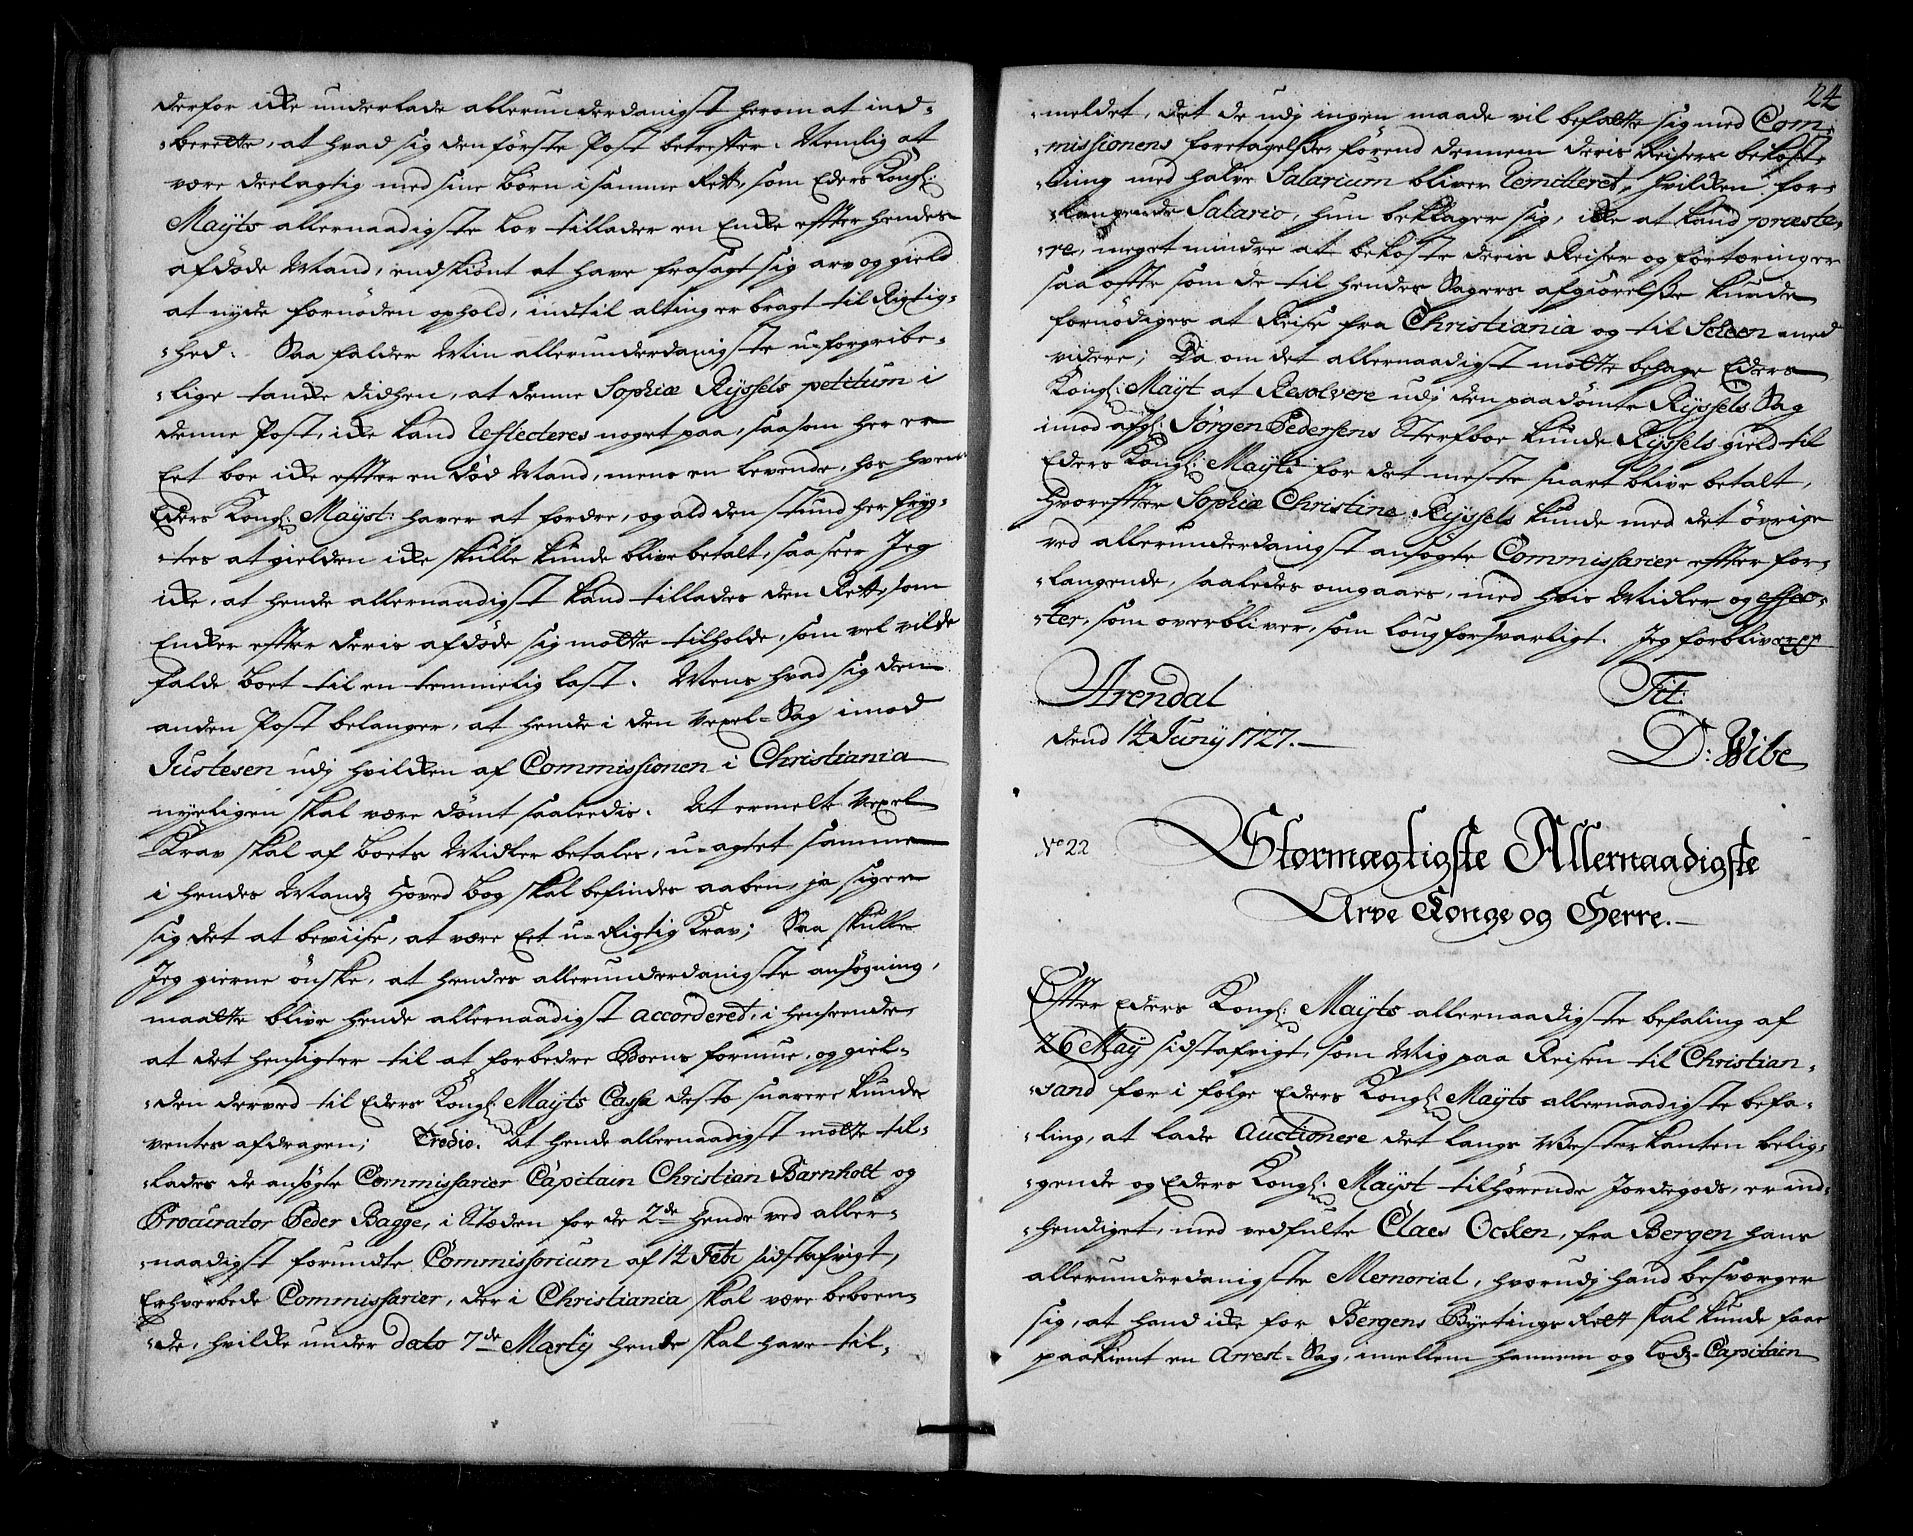 derfor icke underlade allerunderdanigst herom at ind-
-berette, at hvad sig den förste Post betreffer. Nemlig at
være deelagtig med sine Börn i samme Rett, som Eders Kongl:
Mayts allernaadigste lov tillader en Encke effter hendes
afdöde Mand, endskiönt at have frasagt sig arv og gield
at nyde fornöden ophold, indtil alting er bragt til Rigtig-
-hed. Saa falder Min allerunderdanigste u-forgribe-
-lige tancke didhen, at denne Sophiæ Ryssels petitum i
denne Post, icke kand reflecteres noget paa, saasom her er
Eet boe icke effter en död Mand, mens en levende, hos hvem
Eders Kongl: Mayst: haver at fordre, og ald den stund her fryg-
-tes at gielden icke skulle kunde blive betalt, saa seer Jeg
icke, at hende allernaadigst kand tillades den Rett, som
Encker effter deris afdöde sig motte tilholde, som vel vilde
falde Boet til en temmelig last. Mens hvad sig den
anden Post belanger, at hende i den Vexel-Sag imod
Justesen udj hvilcken af Commissionen i Christiania
nyeligen skal være dömt saaledis. At ermelte Vexel
Krav skal af Boets Midler betales, u-agtet samme
i hendes Mands Hoved Bog skal befindes aaben, ja siger
sig det at beviise, at være Eet u-Rigtig Krav; Saa skulle
Jeg gierne önske, at hendes allerunderdanigste ansögning,
maatte blive hende allernaadigst accorderet, i henseende,
at det hensigter til at forbedre Boens formue, og giel-
-den derved til Eders Kongl: Mayts Cassa desto snarere kunde
ventes afdragen; Tredio. At hende allernaadigst motte til-
-lades de ansögte Commissarier Capitain Christian Barnholt og
Procurator Peder Bagge, i Stæden for de 2de hende ved aller-
-naadigst forundte Commissorium af 14 Febr sidstafvigt,
Erhverbede Commissarier, der i Christiania skal være beboen-
-de, hvilcke under dato 7de Marty hende skal have til-
24
-meldet, det de udj ingen maade vil befatte sig med Com-
-missionens foretagelse förend dennem deris Reisers bekost-
-ning med halve Salarium bliver remitteret, hvilcken for-
-langende Salario, hun beklager sig, icke at kand præste-
-re, meget mindre at bekoste deris Reiser og fortæringer
saa offte som de til hendes Sagers afgiörelse kunde
fornödiges at Reise fra Christiania og til Scheen med
videre; Da om det allernaadigst motte behage Eders
Kongl: Mayt at Resolvere udj den paadömte Ryssels Sag
imod afg: Jörgen Pedersens Sterfboe kunde Ryssels gield til
Eders Kongl: Mayts for det meste snart blive betalt,
hvoreffter Sophiæ Christine Ryssels kunde med det övrige
ved allerunderdanigst ansögte Commissarier effter for-
-langende, saaledes omgaaes, med hvis Midler og effec-
-ter, som overbliver, som lougforsvarligt. Jeg forbliver
Arendal Tit:
dend 14 Juny 1727. D: Wibe
No 22
Stormægtigste Allernaadigste
Arve Konge og Herre.
Effter Eders Kongl: Mayts allernaadigste befaling af
26 May sidstafvigt, som Mig paa Reisen til Christian-
-sand for i fölge Eders Kongl: Mayts allernaadigste befa-
-ling, at lade Auctionere det langs Vesterkanten belig-
-gende og Eders Kongl: Mayst tilhörende Jordegods, er ind-
-hendiget, med vedfulte Claes Ocken, fra Bergen hans
allerunderdanigste Memorial, hvorudj hand besværger
sig, at hand icke for Bergens Byetings Rett skal kunde faae
paakient en Arrest-Sag, imellem hannem og Lods-Capitain